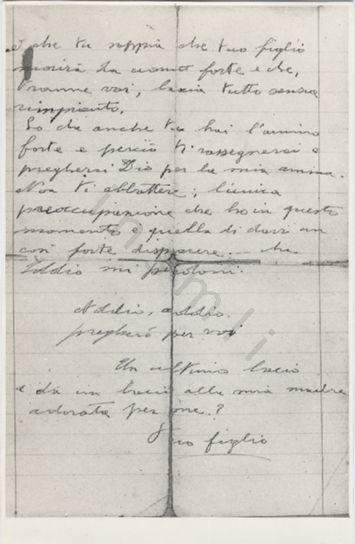 e che tu sappia che tuo figlio
morirà da uomo forte e che,
tranne voi, lascia tutto senza
rimpianto.
So che anche tu hai l'animo
forte e perciò ti rassegnerai e
pregherai Dio per la mia anima.
Non ti abbattere; l'unica
preoccupazione che ho in questo
momento è quella di darvi un
così forte dispiacere... che
Iddio mi perdoni.
Addio, addio.
pregherò per voi
Un ultimo bacio
e dà un bacio alla mia madre
adorata per me.
Tuo figlio